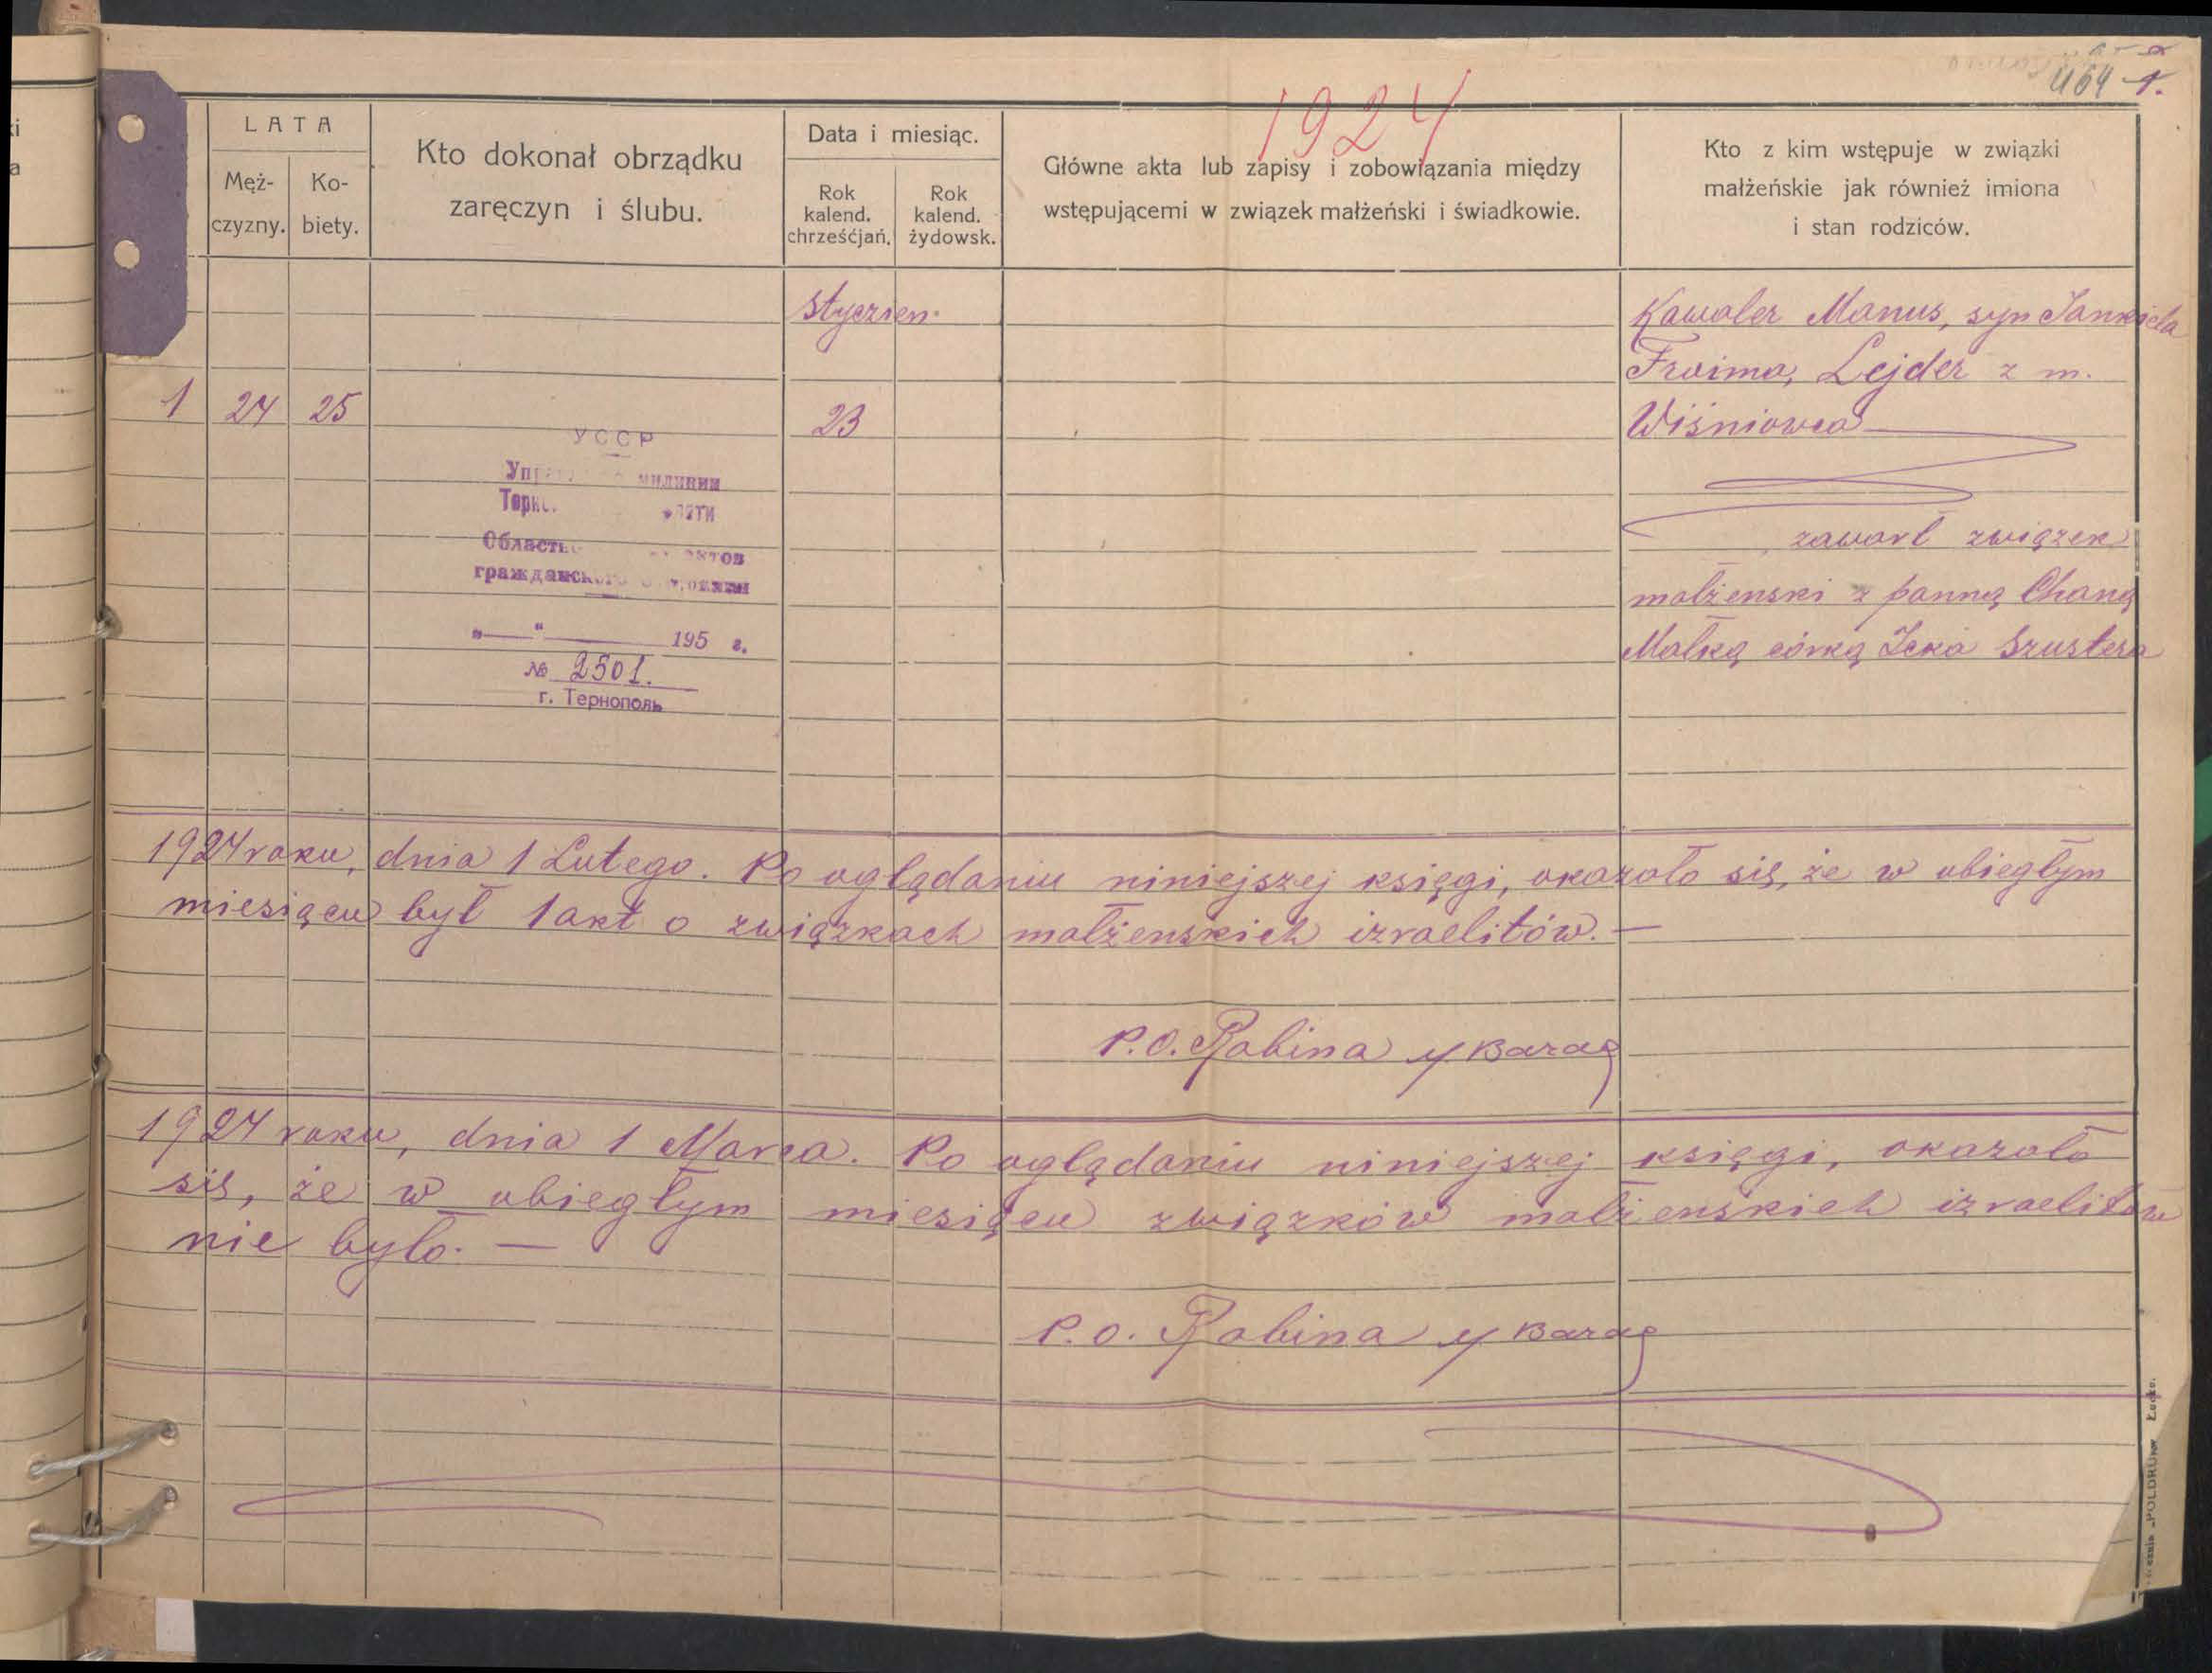 464 1.
1924
LATA
Męż-
czyzny.
Ko-
biety.
Kto dokonał obrządku
zaręczyn i ślubu.
Data i miesiąc.
Rok
kalend.
chrześćjań.
Rok
kalend.
żydowsk.
Główne akta lub zapisy i zobowiązania między
wstępującemi w związek małżeński i świadkowie.
Kto z kim wstępuje w związki
małżeńskie jak również imiona
i stan rodziców.
styczien.
1 24 25
23
Kawaler Manus, syn Jankiela
Froima, Lejder z m.
Wiśniowca
zawarł związek
małżenski z panną Chaną
Małką córką Icka Szustera
УССР
милиции
Област
гражданск
" " 195 г.
№ 2501.
г. Тернополь
1924 roku, dnia 1 Lutego. Po oglądaniu niniejszej księgi, okazało się, że w ubiegłym
miesiącu był 1 akt o związkach małżenskich izraelitów. —
P.O. Rabina Barag
1924 roku, dnia 1 Marca. Po oglądaniu niniejszej księgi, okazało
się, że w ubiegłym miesiącu związków małżenskich izraelitów
nie było. —
P.O. Rabina Barag
„POLDRUK" Łuck.